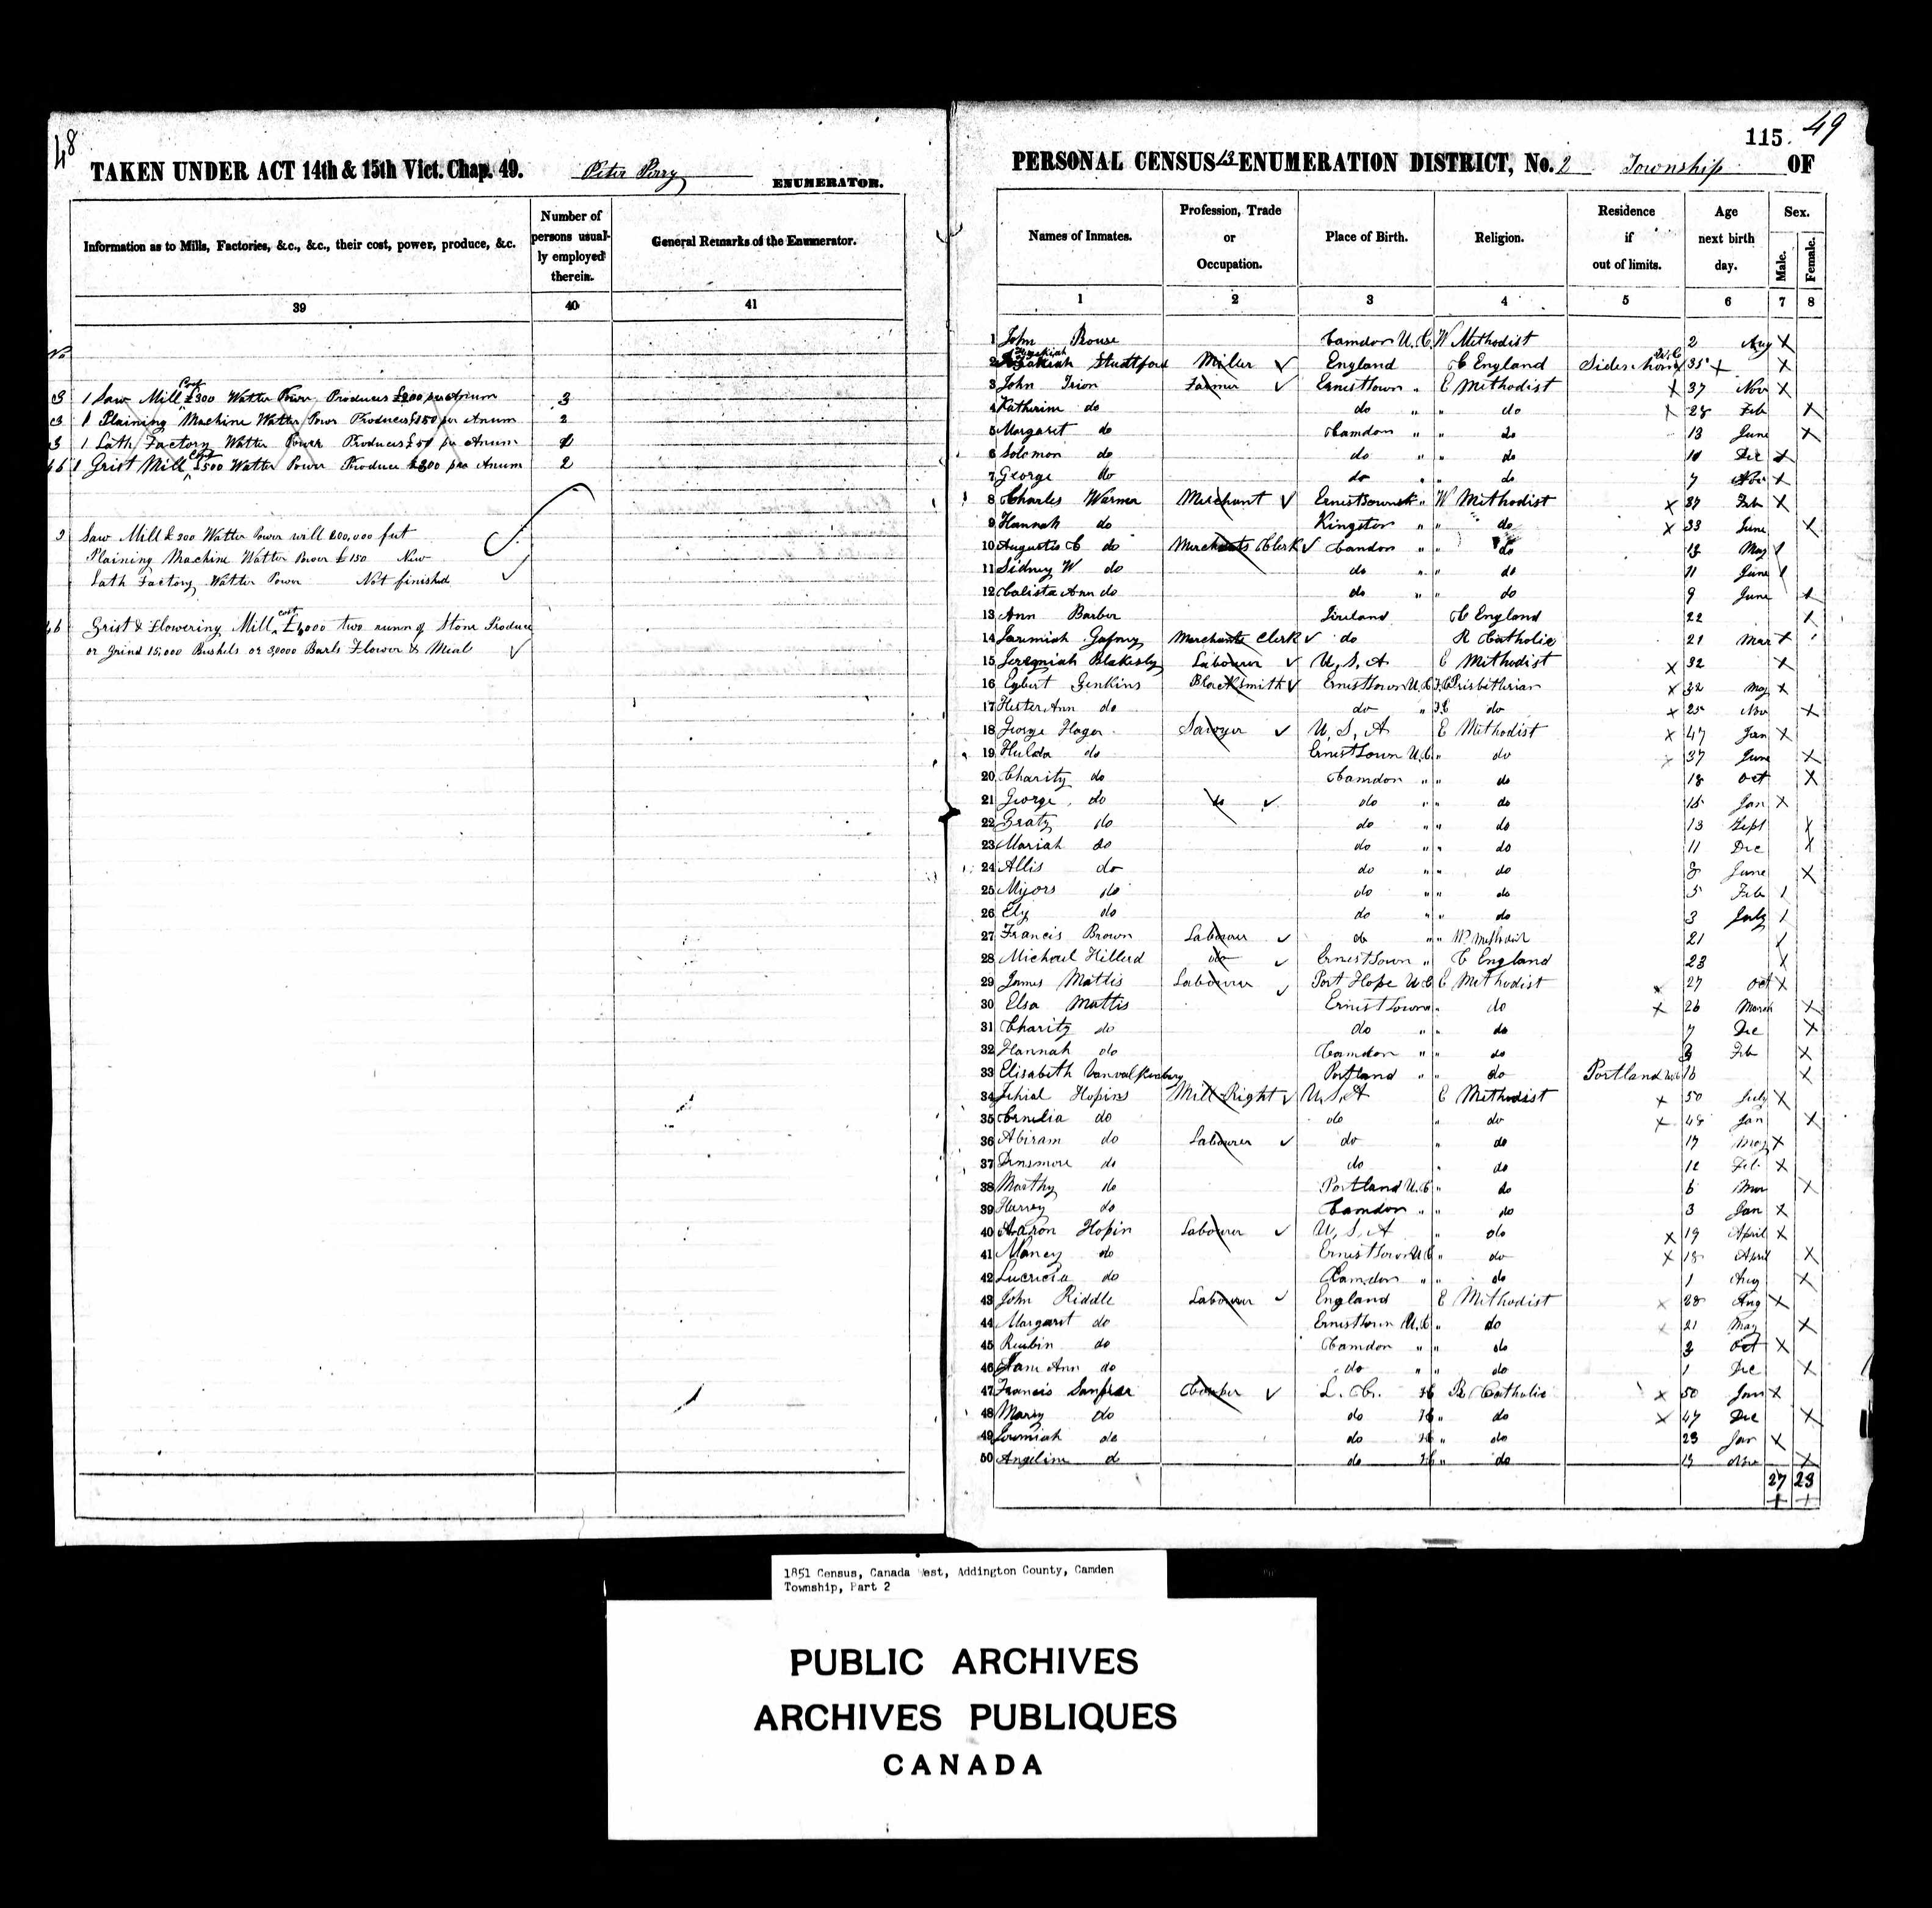 48
TAKEN UNDER ACT 14th & 15th Vict. Chap. 49. Peter Perry ENUMERATOR.
Information as to Mills, Factories, &c., &c., their cost, power, produce, &c.
Number of persons usual-ly employed therein.
General Remarks of the Enumerator.
39 40 41
No
3 1 Saw Mill Cost £300 Watter Power Produces £200 per Anum 3
3 1 Plaining Machine Watter Power Produces £150 per Anum 2
3 1 Lath Factory Watter Power Produces £50 per Anum
46 1 Grist Mill Cost £500 Watter Power Produce £300 pra Anum 2
3 Saw Mill £300 Watter Power will 200,000 feet
Plaining Machine Watter Power £150 New
Lath Factory Watter Power Not finished
46 Grist & Flowering Mill cost £1,000 two runn of Stone Produce
or Grind 15,000 Bushels or 3,0000 Barls Flower & Meal
115. 49
PERSONAL CENSUS 13 ENUMERATION DISTRICT, No. 2 Township OF
Names of Inmates.
Profession, Trade or Occupation.
Place of Birth.
Religion.
Residence if out of limits.
Age next birth day.
Sex.
Male. Female.
1 2 3 4 5 6 7 8
1 John Rouse Camdon U.C. W Methodist 2 Aug X
2 Hezekiah Studtford Miller England C England 35 X X
3 John Irion Farmer Ernesttown " E Methodist X 37 Nov X
4 Katherine do do " " do X 28 Feb X
5 Margaret do Camdon " " do 13 June X
6 Solomon do do " " do 10 Dec X
7 George do do " " do 7 Nov X
8 Charles Warner Merchant Ernesttown " W Methodist X 37 Feb X
9 Hannah do Kingston " " do X 33 June X
10 Augustis C do Merchants Clerk Camdon " " do 13 May 1
11 Sidney W do do " " do 11 June 1
12 Calista Ann do do " " do 9 June X
13 Ann Barber Ireland C England 22 X
14 Jeremiah Gafney Merchants Clerk do R Catholic 21 Mar X
15 Jeremiah Blakesly Labourer U.S.A E Methodist X 32 X
16 Egbert Jenkins Blacksmith Ernesttown U.C F.C Prisbitherian X 32 May X
17 Hester Ann do do " F.C do X 25 Nov X
18 George Hager Sawyer U.S.A E Methodist X 47 Jan X
19 Hulda do Ernesttown U.C. " do X 37 June X
20 Charity do Camdon " " do 18 Oct X
21 George do do do " " do 15 Jan X
22 Graty do do " " do 13 Sept X
23 Mariah do do " " do 11 Dec X
24 Allis do do " " do 8 June X
25 Myors do do " " do 5 Feb 1
26 Ely do do " " do 3 July 1
27 Francis Brown Labourer do " " W Methodist 21 X
28 Michael Hillerd do Ernesttown " C England 23 X
29 James Mattis Labourer Port Hope U C E Methodist X 27 Oct X
30 Elsa Mattis Ernesttown " do X 26 March X
31 Charity do do " " do 7 Dec X
32 Hannah do Camdon " " do 3 Feb X
33 Elisabeth Portland " " do Portland U.C 16 X
34 Jehial Hopins Mill Right U.S.A E Methodist X 50 July X
35 Cornelia do do " do X 48 Jan X
36 Abiram do Labourer do " do 17 May X
37 Dinsmore do do " do 12 Feb X
38 Marthy do Portland U.C " do 6 Mar X
39 Harvey do Camdon " " do 3 Jan X
40 Aaron Hopin Labourer U.S.A " do X 19 April X
41 Nancy do Ernesttown U C " do X 18 April X
42 Lucricia do Camdon " " do 1 Aug X
43 John Riddle Labourer England E Methodist X 28 Aug X
44 Margaret do Ernesttown U.C " do X 21 May X
45 Reubin do Camdon " " do 3 Oct X
46 Jane Ann do do " " do 1 Dec X
47 Francis Cooper L. Ca. R. Catholic X 50 Jan X
48 Marry do do " do X 47 Dec X
49 Jeremiah do do " do 23 Jan X
50 Angeline d do " do X
27 23
+ +
1851 Census, Canada West, Addington County, Camden
Township, Part 2
PUBLIC ARCHIVES
ARCHIVES PUBLIQUES
CANADA